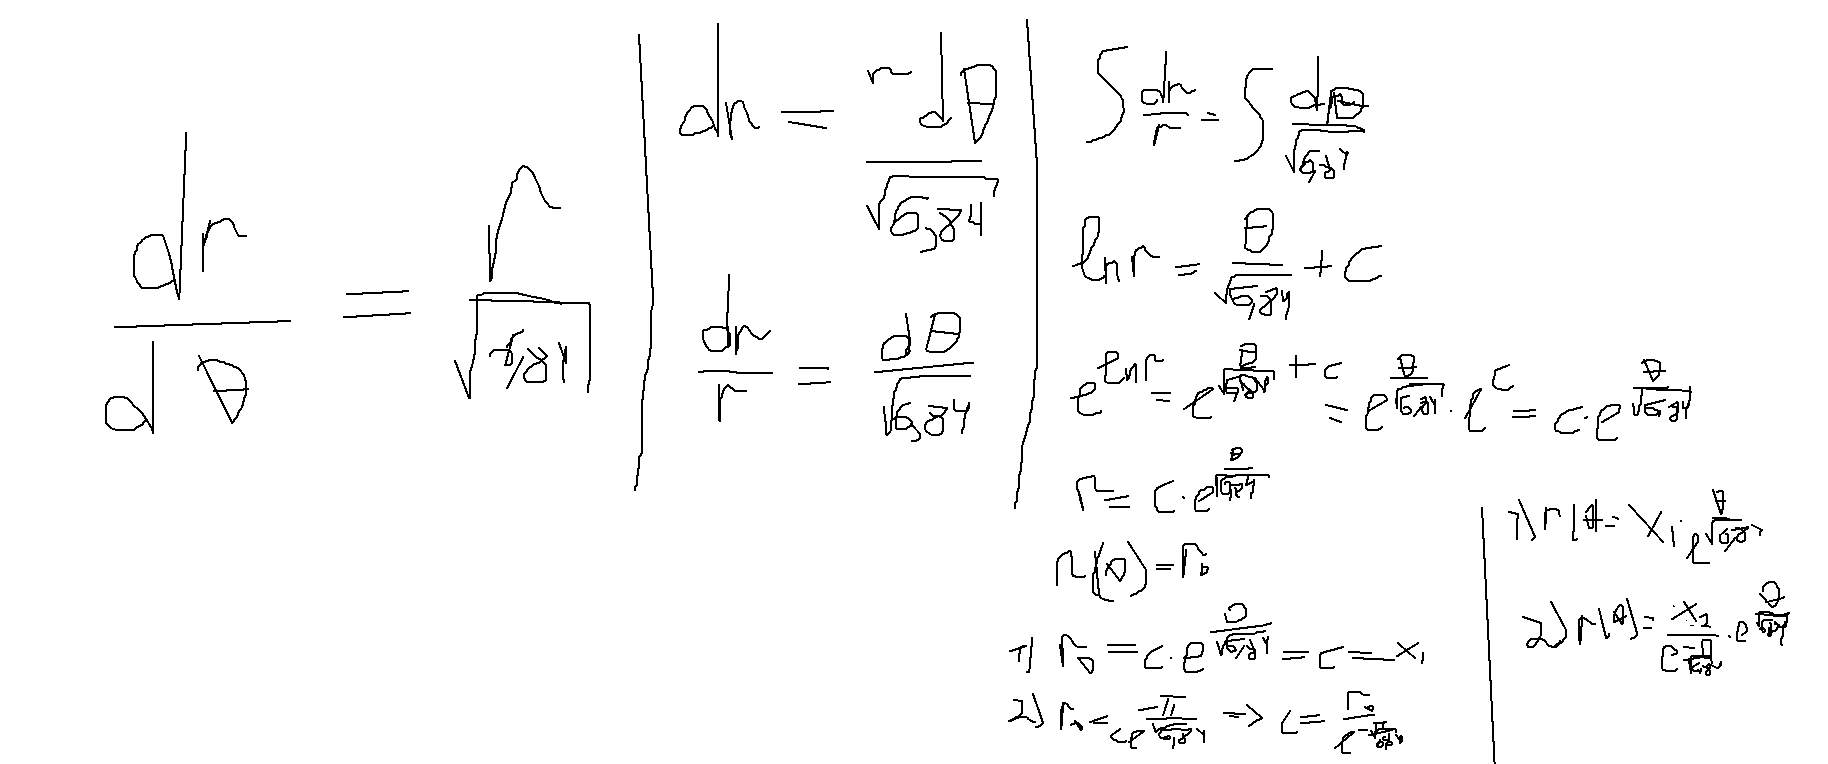 dr/dθ = r/√5,84
dr = r dθ/√5,84
dr/r = dθ/√5,84
∫ dr/r = ∫ dθ/√5,84
ln r = θ/√5,84 + C
e^(ln r) = e^(θ/√5,84 + c) = e^(θ/√5,84) · e^c = c · e^(θ/√5,84)
r = C · e^(θ/√5,84)
r(θ) = r₀
1) r₀ = c · e^(0/√5,84) = c = x₁
2) r₀ = c e^(-π/√5,84) => c = r₀/e^(-π/√5,84)
1) r(θ = x₁ · e^(θ/√5,84)
2) r(θ) = x₂/e^(-π/√5,84) · e^(θ/√5,84)